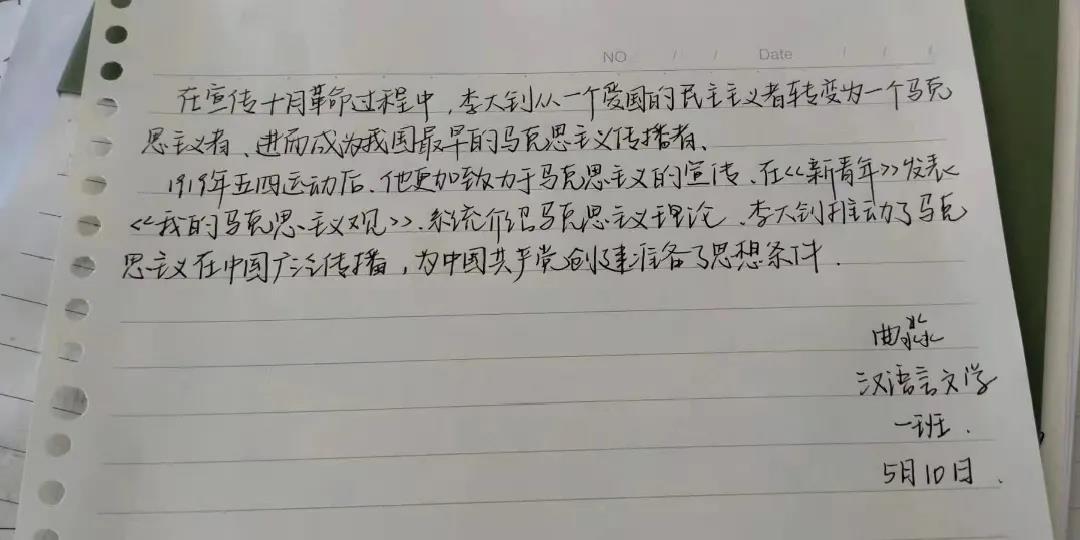 NO / / Date / / /
在宣传十月革命过程中，李大钊从一个爱国的民主主义者转变为一个马克
思主义者、进而成为我国最早的马克思主义传播者、
1919年五四运动后、他更加致力于马克思主义的宣传、在<<新青年>>发表
<<我的马克思主义观>>、系统介绍马克思主义理论、李大钊推动了马克
思主义在中国广泛传播，为中国共产党创建准备了思想条件.
曲淼
汉语言文学
一班.
5月10日.